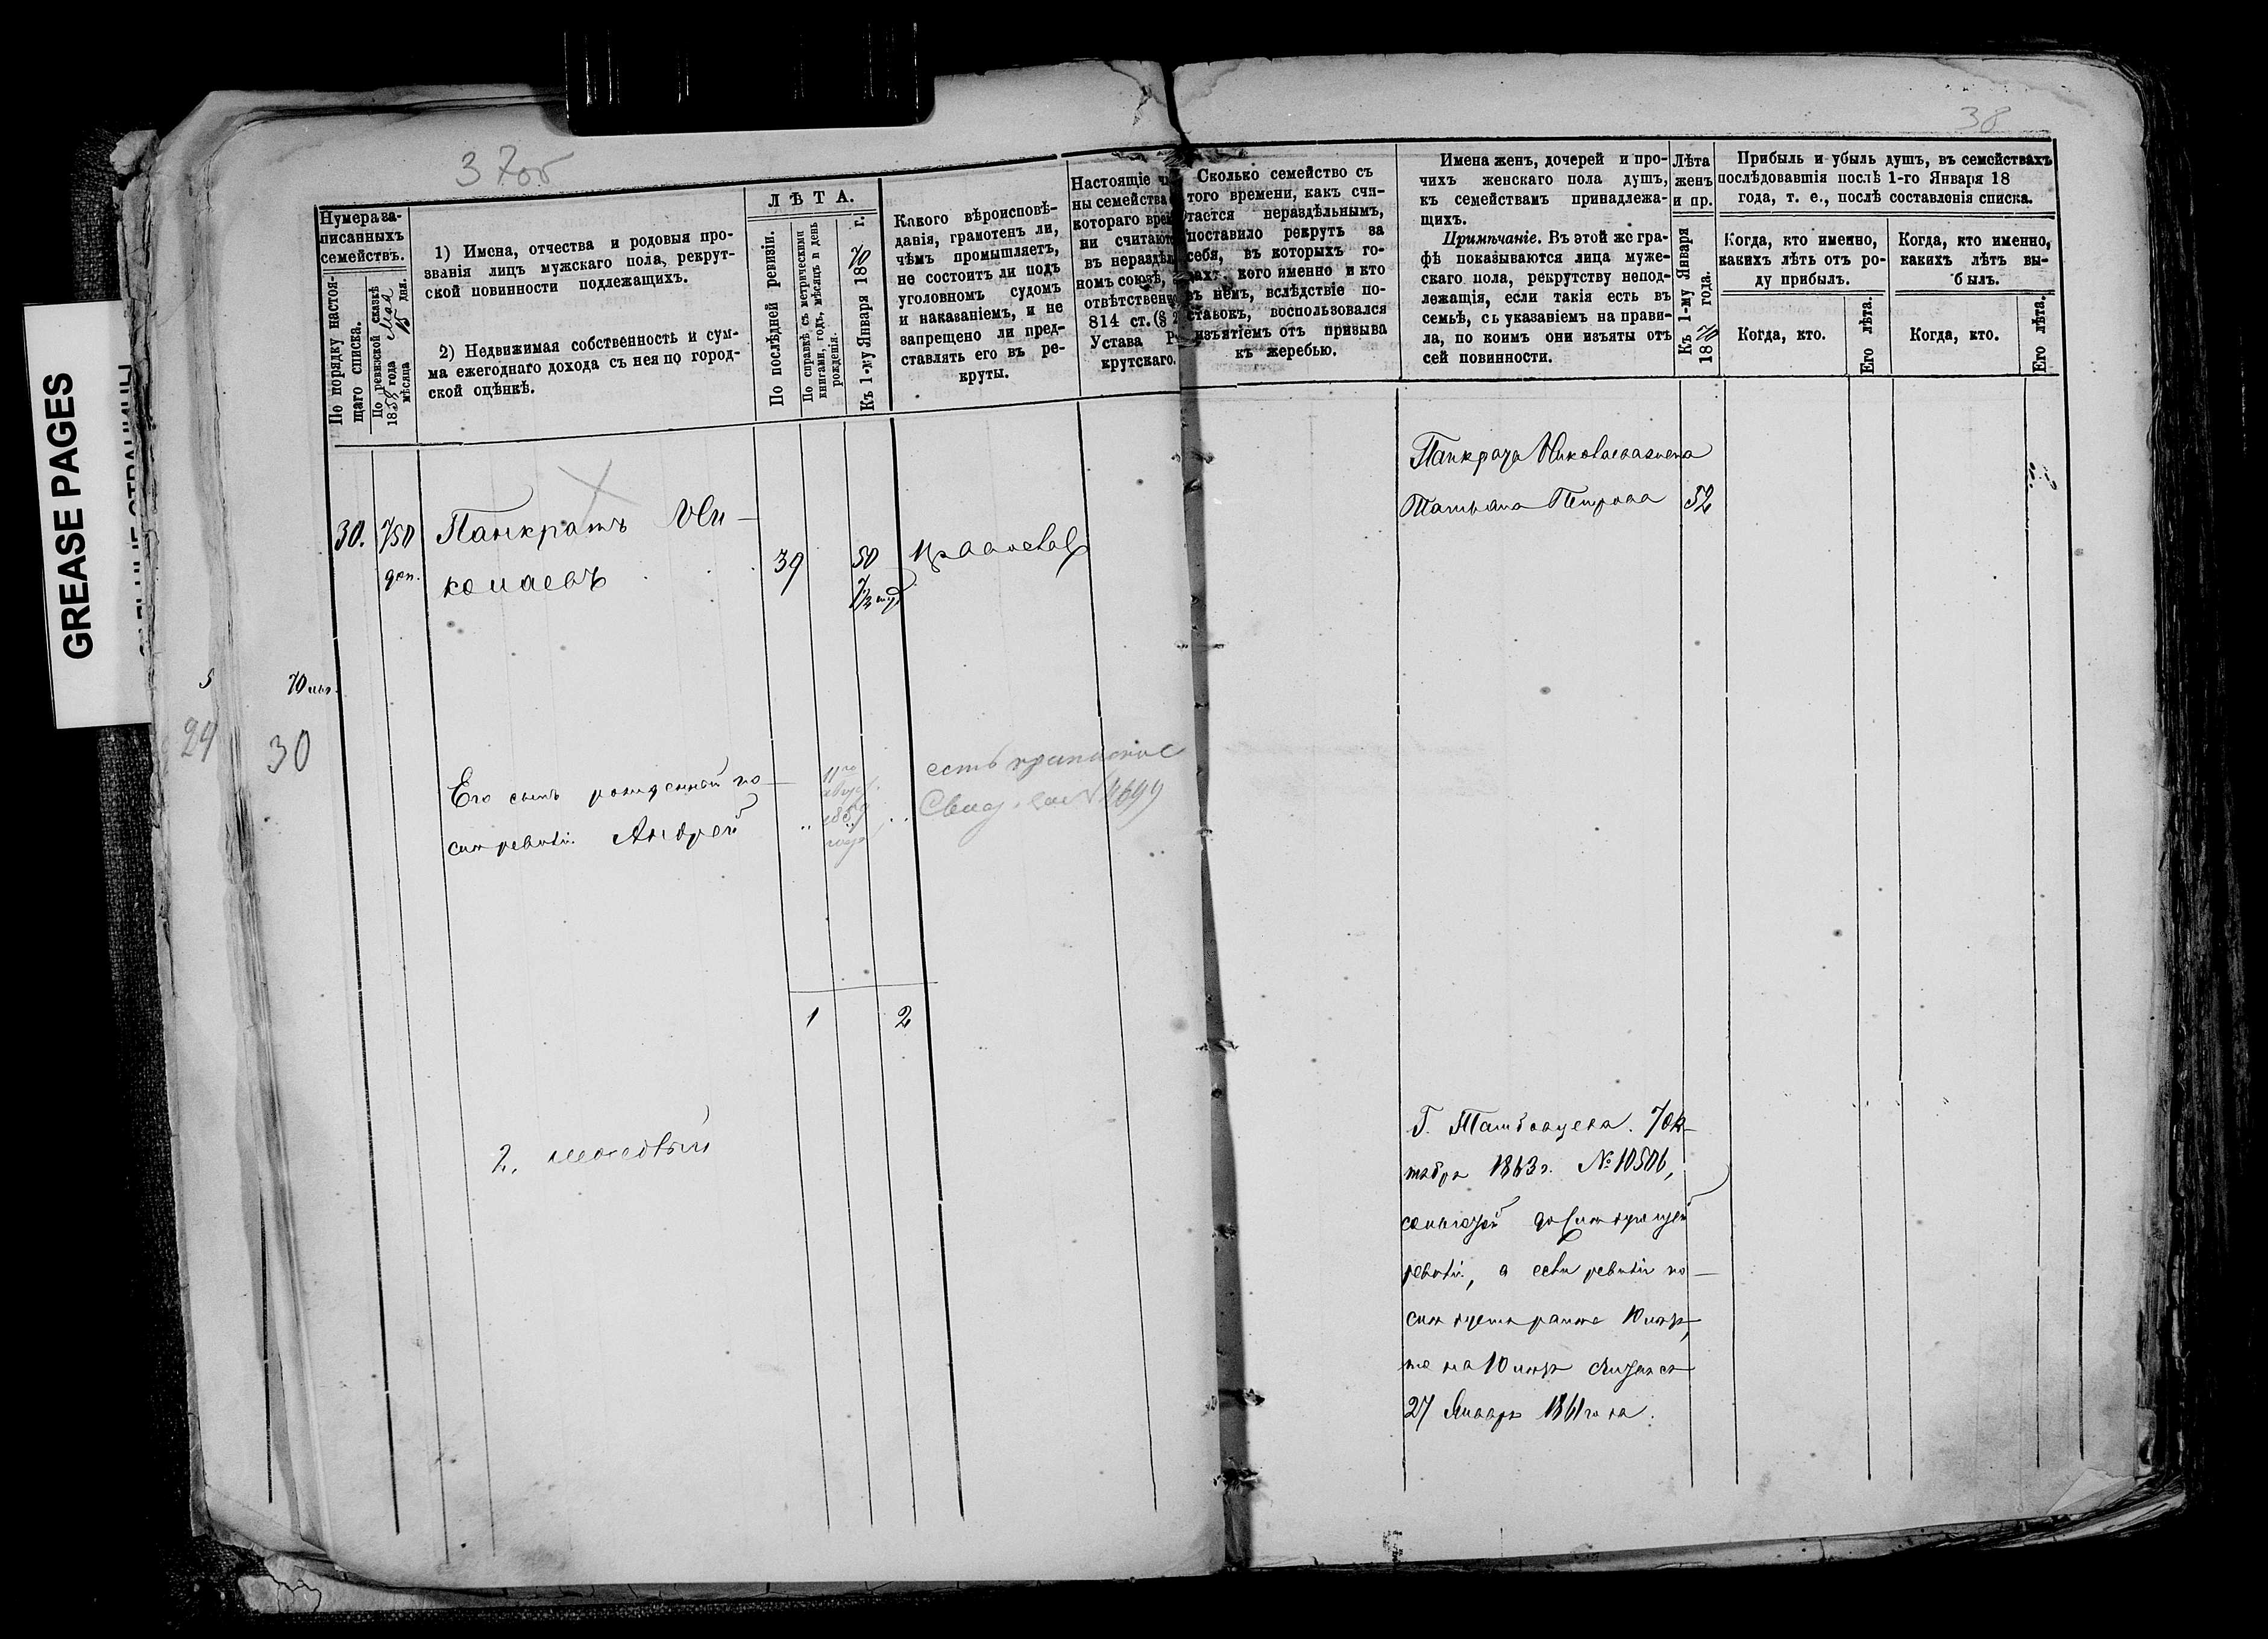 GREASE PAGES
37об
38
Нумера за-
писанныхъ
семействъ.
По порядку настоя-
щаго списка.
По ревизской сказкѣ
1858 года Мая
мѣсяца 15 дня.
1) Имена, отчества и родовыя про-
званія лицъ мужскаго пола, рекрут-
ской повинности подлежащихъ.
2) Недвижимая собственность и сум-
ма ежегоднаго дохода съ нея по город-
ской оцѣнкѣ.
ЛѢТА.
По послѣдней ревизіи.
По справкѣ съ метрическими
книгами, годъ, мѣсяцъ и день
рожденія.
Къ 1-му Января 1870 г.
Какого вѣроисповѣ-
данія, грамотенъ ли,
чѣмъ промышляетъ,
не состоитъ ли подъ
уголовномъ судомъ
и наказаніемъ, и не
запрещено ли пред-
ставлять его въ ре-
круты.
Настоящіе
ны семейства
котораго врем
ни считают
въ нераздѣл
номъ союзѣ,
отвѣтственно
814 ст. (§ 2
Устава Р
крутскаго.
Сколько семейство съ
того времени, какъ счи-
тается нераздѣльнымъ,
поставило рекрутъ за
себя, въ которыхъ го-
дахъ, кого именно и кто
въ немъ, вслѣдствіе по-
ставокъ, воспользовался
изъятіемъ отъ призыва
къ жеребью.
Имена женъ, дочерей и про-
чихъ женскаго пола душъ,
къ семействамъ принадлежа-
щихъ.
Примѣчаніе. Въ этой же гра-
фѣ показываются лица муже-
скаго пола, рекрутству непод-
лежащія, если такія есть въ
семьѣ, съ указаніемъ на прави-
ла, по коимъ они изъяты отъ
сей повинности.
Лѣта
женъ
и пр.
Къ 1-му Января
1870 года.
Прибыль и убыль душъ, въ семействахъ
послѣдовавшія послѣ 1-го Января 18
года, т. е., послѣ составленія списка.
Когда, кто именно,
какихъ лѣтъ отъ ро-
ду прибылъ.
Когда, кто именно,
какихъ лѣтъ вы-
былъ.
Когда, кто.
Его лѣта.
Когда, кто.
Его лѣта.
30. 750 доп.
Панкратъ Ни-
колаевъ
39 50
Его сынъ рожденный по-
слѣ ревизіи Андрей
11го
август.
года
есть
Свид. № 4699
1 2
2.
29
30
Панкрата Николаева жена
Татьяна Петрова 52
Г. Тамбовцева. 7 Ок-
тября 1863 г. № 10506,
до слѣдующей
ревизіи, а если ревизія по-
слѣдуетъ ранѣе 10 лѣтъ,
то на 10 лѣтъ считая съ
27 Января 1861 года.